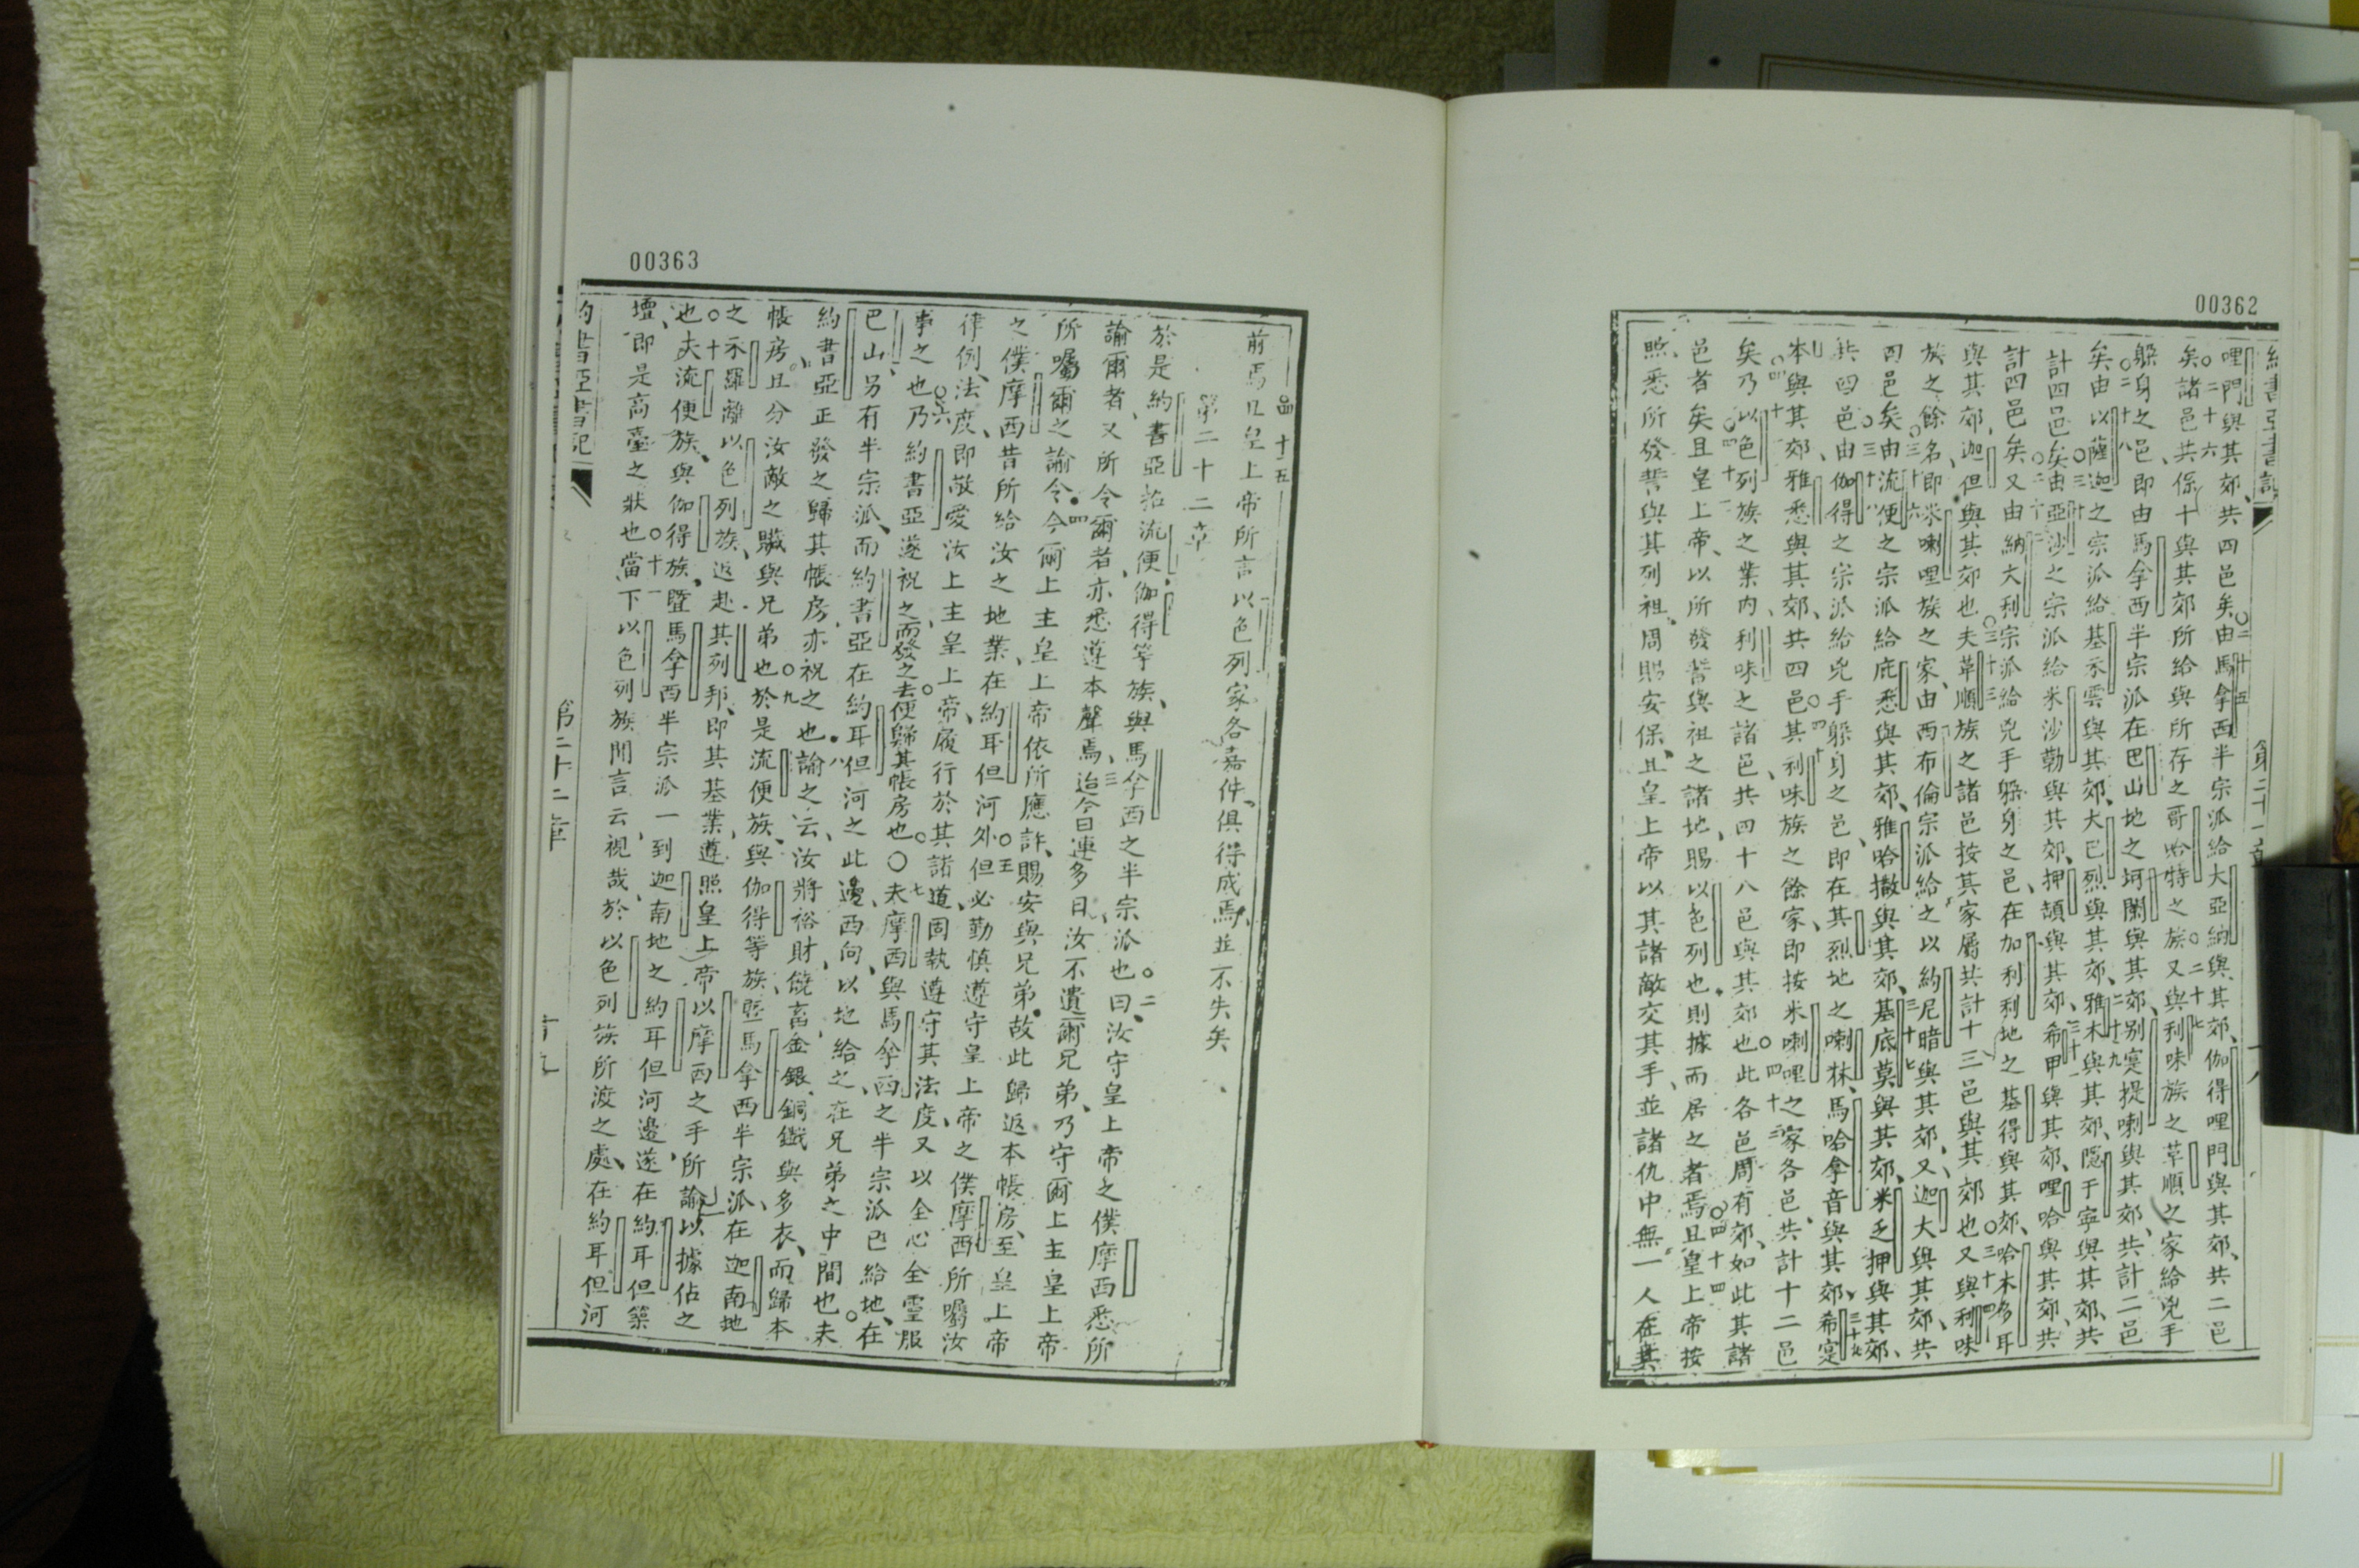 00362
約書亞書記
第二十一章
哩門與其郊、共四邑矣○二十五由馬拿西半宗派給大亞納與其郊、伽得哩門與其郊、共二邑
矣○二十六諸邑共係十與其郊所給與所存之哥哈特之族○二十七又與利味族之革順之家給兇手
躲身之邑、即由馬拿西半宗派在巴山地之坷闌與其郊、別寔提喇與其郊、共計二邑
矣○二十八由以薩迦之宗派給基示雲與其郊、大巴烈與其郊、二十九雅木與其郊、隱于寧與其郊、共
計四邑矣○三十由亞沙之宗派給米沙勒與其郊、押頓與其郊、三十一希甲與其郊、哩哈與其郊、共
計四邑矣○三十二又由納大利宗派給兇手躲身之邑、在加利利地之基得與其郊、哈木多耳
與其郊、迦但與其郊也○三十三夫革順族之諸邑按其家屬共計十三邑與其郊也○三十四又與利味
族之餘名即米喇哩族之家、由西布倫宗派給之以約尼暗與其郊、又迦大與其郊、共
四邑矣○三十六由流便之宗派給庇悉與其郊、雅哈撒與其郊、三十七基底莫與其郊、米乏押與其郊、
共四邑○三十八由伽得之宗派給兇手躲身之邑、即在其烈地之喇秣、馬哈拿音與其郊、三十九希寔
本與其郊、雅悉與其郊、共四邑○四十其利味族之餘家、即按米喇哩之家各邑、共計十二邑
矣○四十一乃以色列族之業內、利味之諸邑、共四十八邑與其郊也○四十二此各邑周有郊、如此其諸
邑者矣○四十三且皇上帝、以所發誓與祖之諸地、賜以色列也、則據而居之者焉○四十四且皇上帝按
照、悉所發誓與其列祖、周賜安保、且皇上帝以其諸敵交其手、並諸仇中無一人在其
00363
前焉○四十五且皇上帝所言以色列家各嘉件、俱得成焉、並一不失矣、
第二十二章
於是約書亞招流便、伽得等族、與馬拿西之半宗派也○二曰、汝守皇上帝之僕摩西悉所
諭爾者、又所令爾者、亦悉遵本聲焉、三迨今日連多日、汝不遺爾兄弟、乃守爾上主皇上帝
所囑爾之諭令、四今爾上主皇上帝依所應許、賜安與兄弟、故此歸返本帳房、至皇上帝
之僕摩西昔所給汝之地業、在約耳但河外○五但必勤慎遵守皇上帝之僕摩西所囑汝
律例、法度、即敬愛汝上主皇上帝、履行於其諸道、固執遵守其法度、又以全心全靈服
事之也○六乃約書亞遂祝之、而發之去○便歸其帳房也○七夫摩西與馬拿西之半宗派已給地、在
巴山另有半宗派、而約書亞在約耳但河之此邊、西向以地給之、在兄弟之中間也○夫
約書亞正發之歸其帳房、亦祝之也、八諭之云、汝將裕財、饒畜、金銀、銅鐵與多衣、而歸本
帳房、且分汝敵之贓與兄弟也○九於是流便族、與伽得等族、曁馬拿西半宗派、在迦南地
之示羅離以色列族、返赴其列邦、即其基業、遵照皇上帝以摩西之手所諭以據佔之
也○十夫流便族、與伽得族、曁馬拿西半宗派一到迦南地之約耳但河邊、遂在約耳但築
壇、即是高臺之狀也○十一當下以色列族聞言云、視哉、於以色列族所渡之處、在約耳但河
約書亞書記
第二十二章
十九